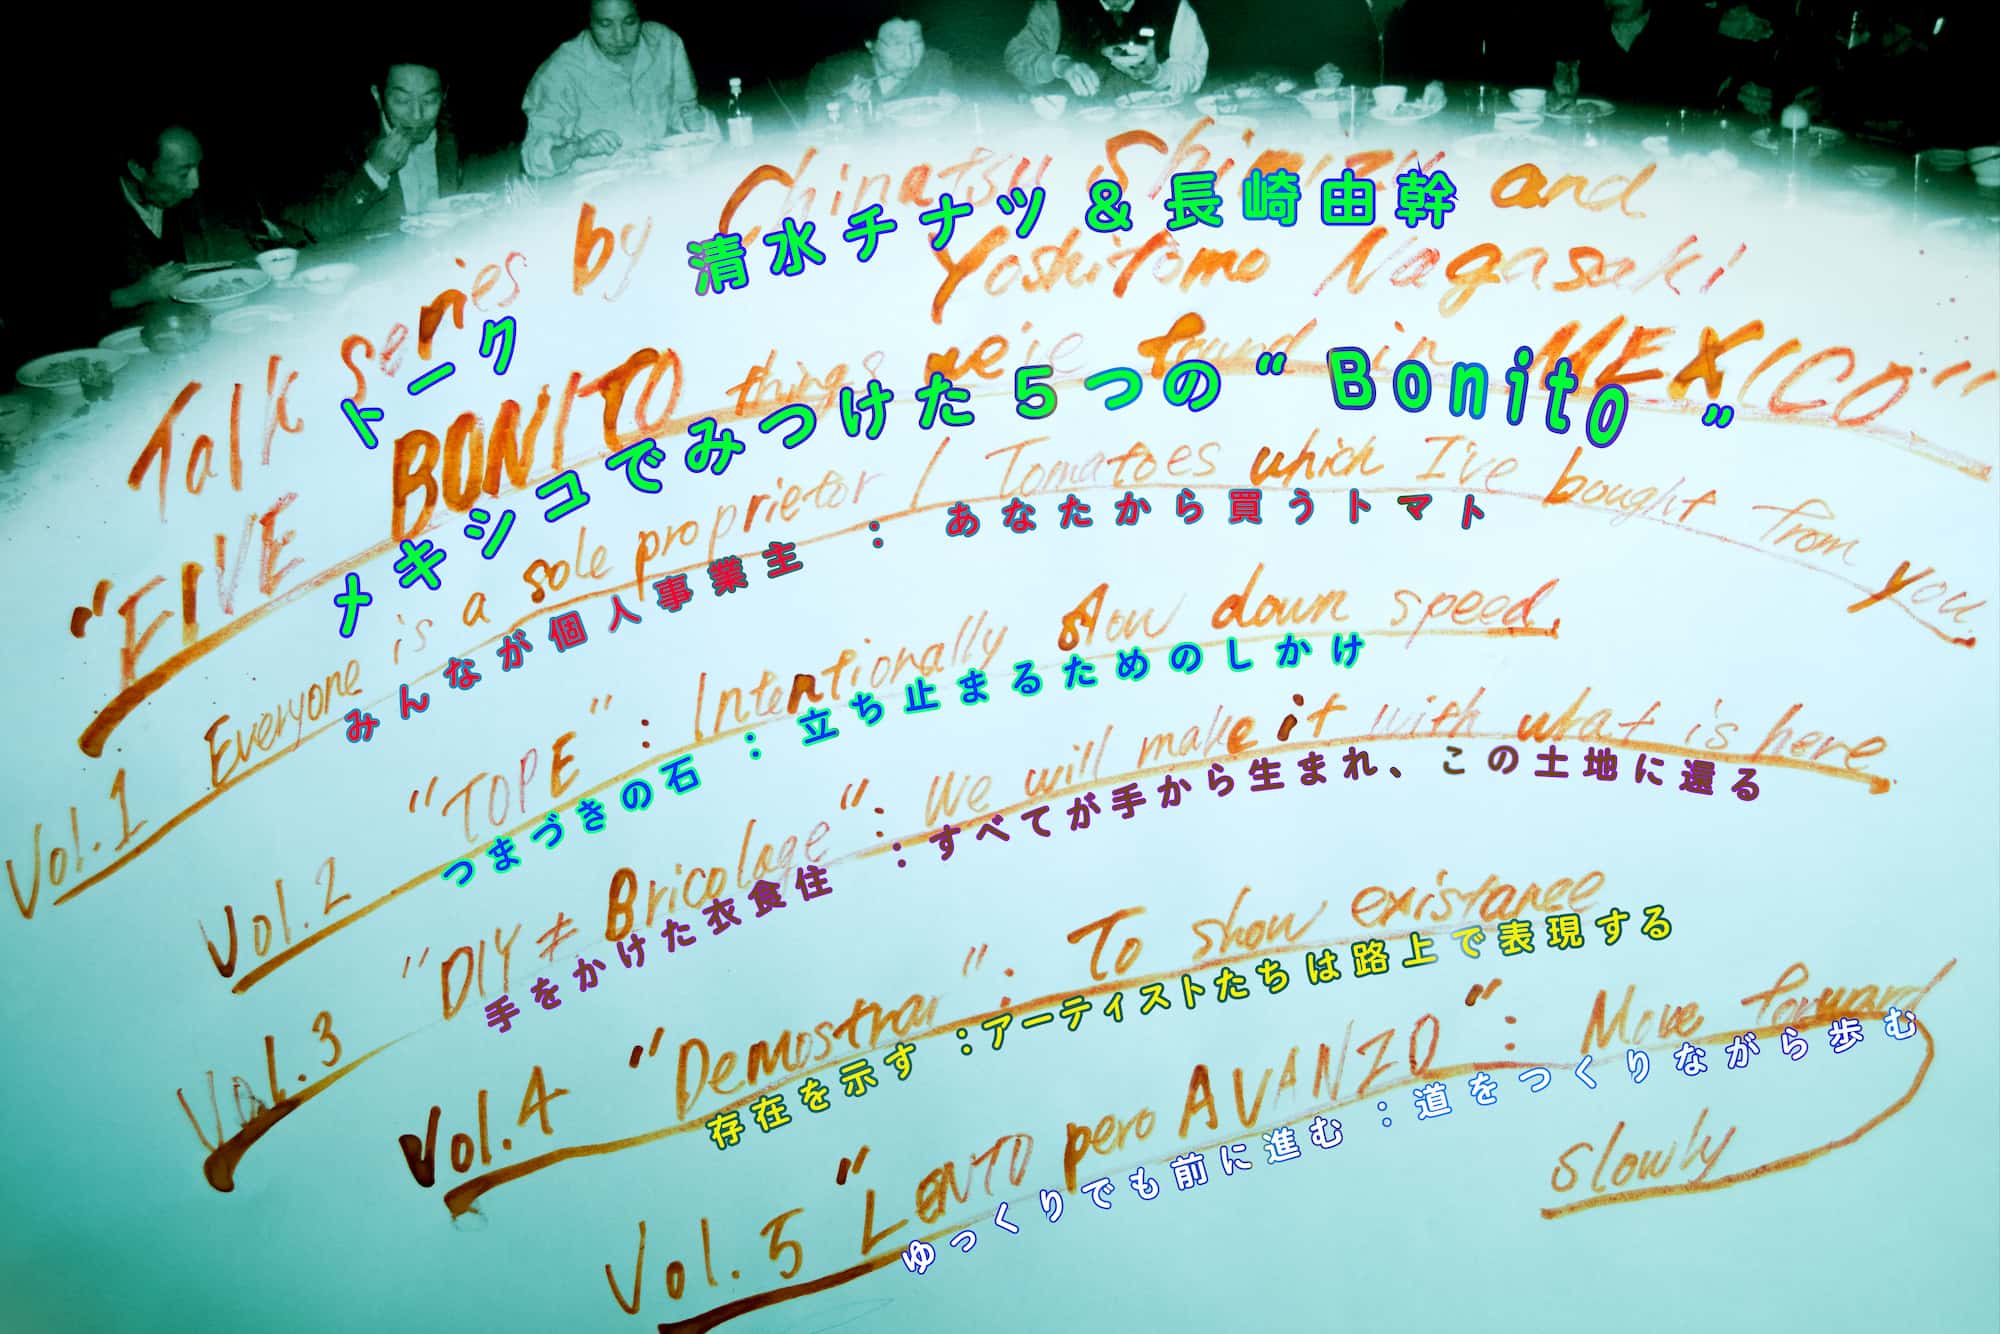 Talk series by Chinatsu Shimizu and
Yoshitomo Nagasaki
清水チナツ＆長崎由幹
トーク
"FIVE BONITO things we've found in MEXICO"
メキシコでみつけた５つの“Bonito”
Vol.1 Everyone is a sole proprietor / Tomatoes which I've bought from you.
みんなが個人事業主 ： あなたから買うトマト
Vol.2 "TOPE" : Intentionally slow down speed.
つまづきの石 ：立ち止まるためのしかけ
Vol.3 "DIY ≠ Bricolage" : We will make it with what is here.
手をかけた衣食住 ：すべてが手から生まれ、この土地に還る
Vol.4 "Demostrar" : To show existance
存在を示す ：アーティストたちは路上で表現する
Vol.5 "LENTO pero AVANZO" : Move forward
slowly
ゆっくりでも前に進む ：道をつくりながら歩む